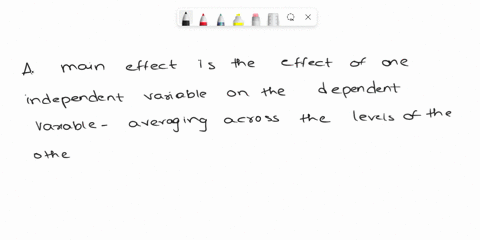 A main effect is the effect of one
independent variable on the dependent
variable - averaging across the levels of the
othe